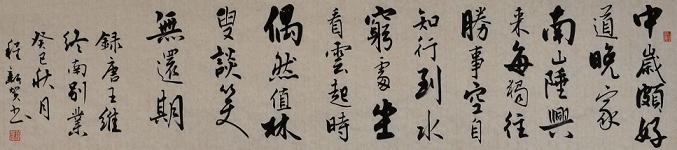 中歲頗好
道晚家
南山陲興
來每獨往
勝事空自
知行到水
窮處坐
看雲起時
偶然值林
叟談笑
無還期
録唐王維
終南別業
癸巳秋月
程